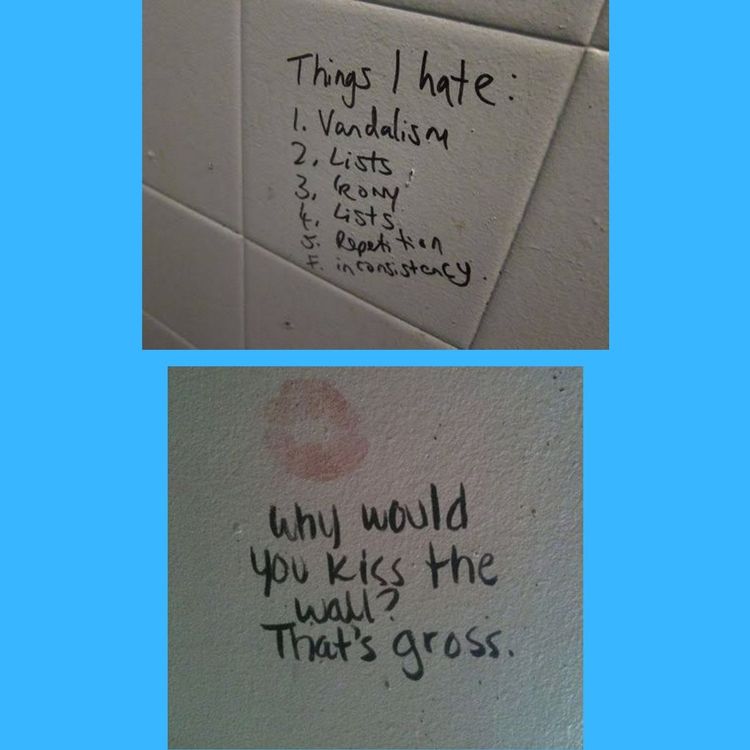 Things I hate:
1. Vandalism
2. Lists
3. Irony
4. Lists
5. Repetition
F. inconsistency.
Why would
you kiss the
wall?
That's gross.